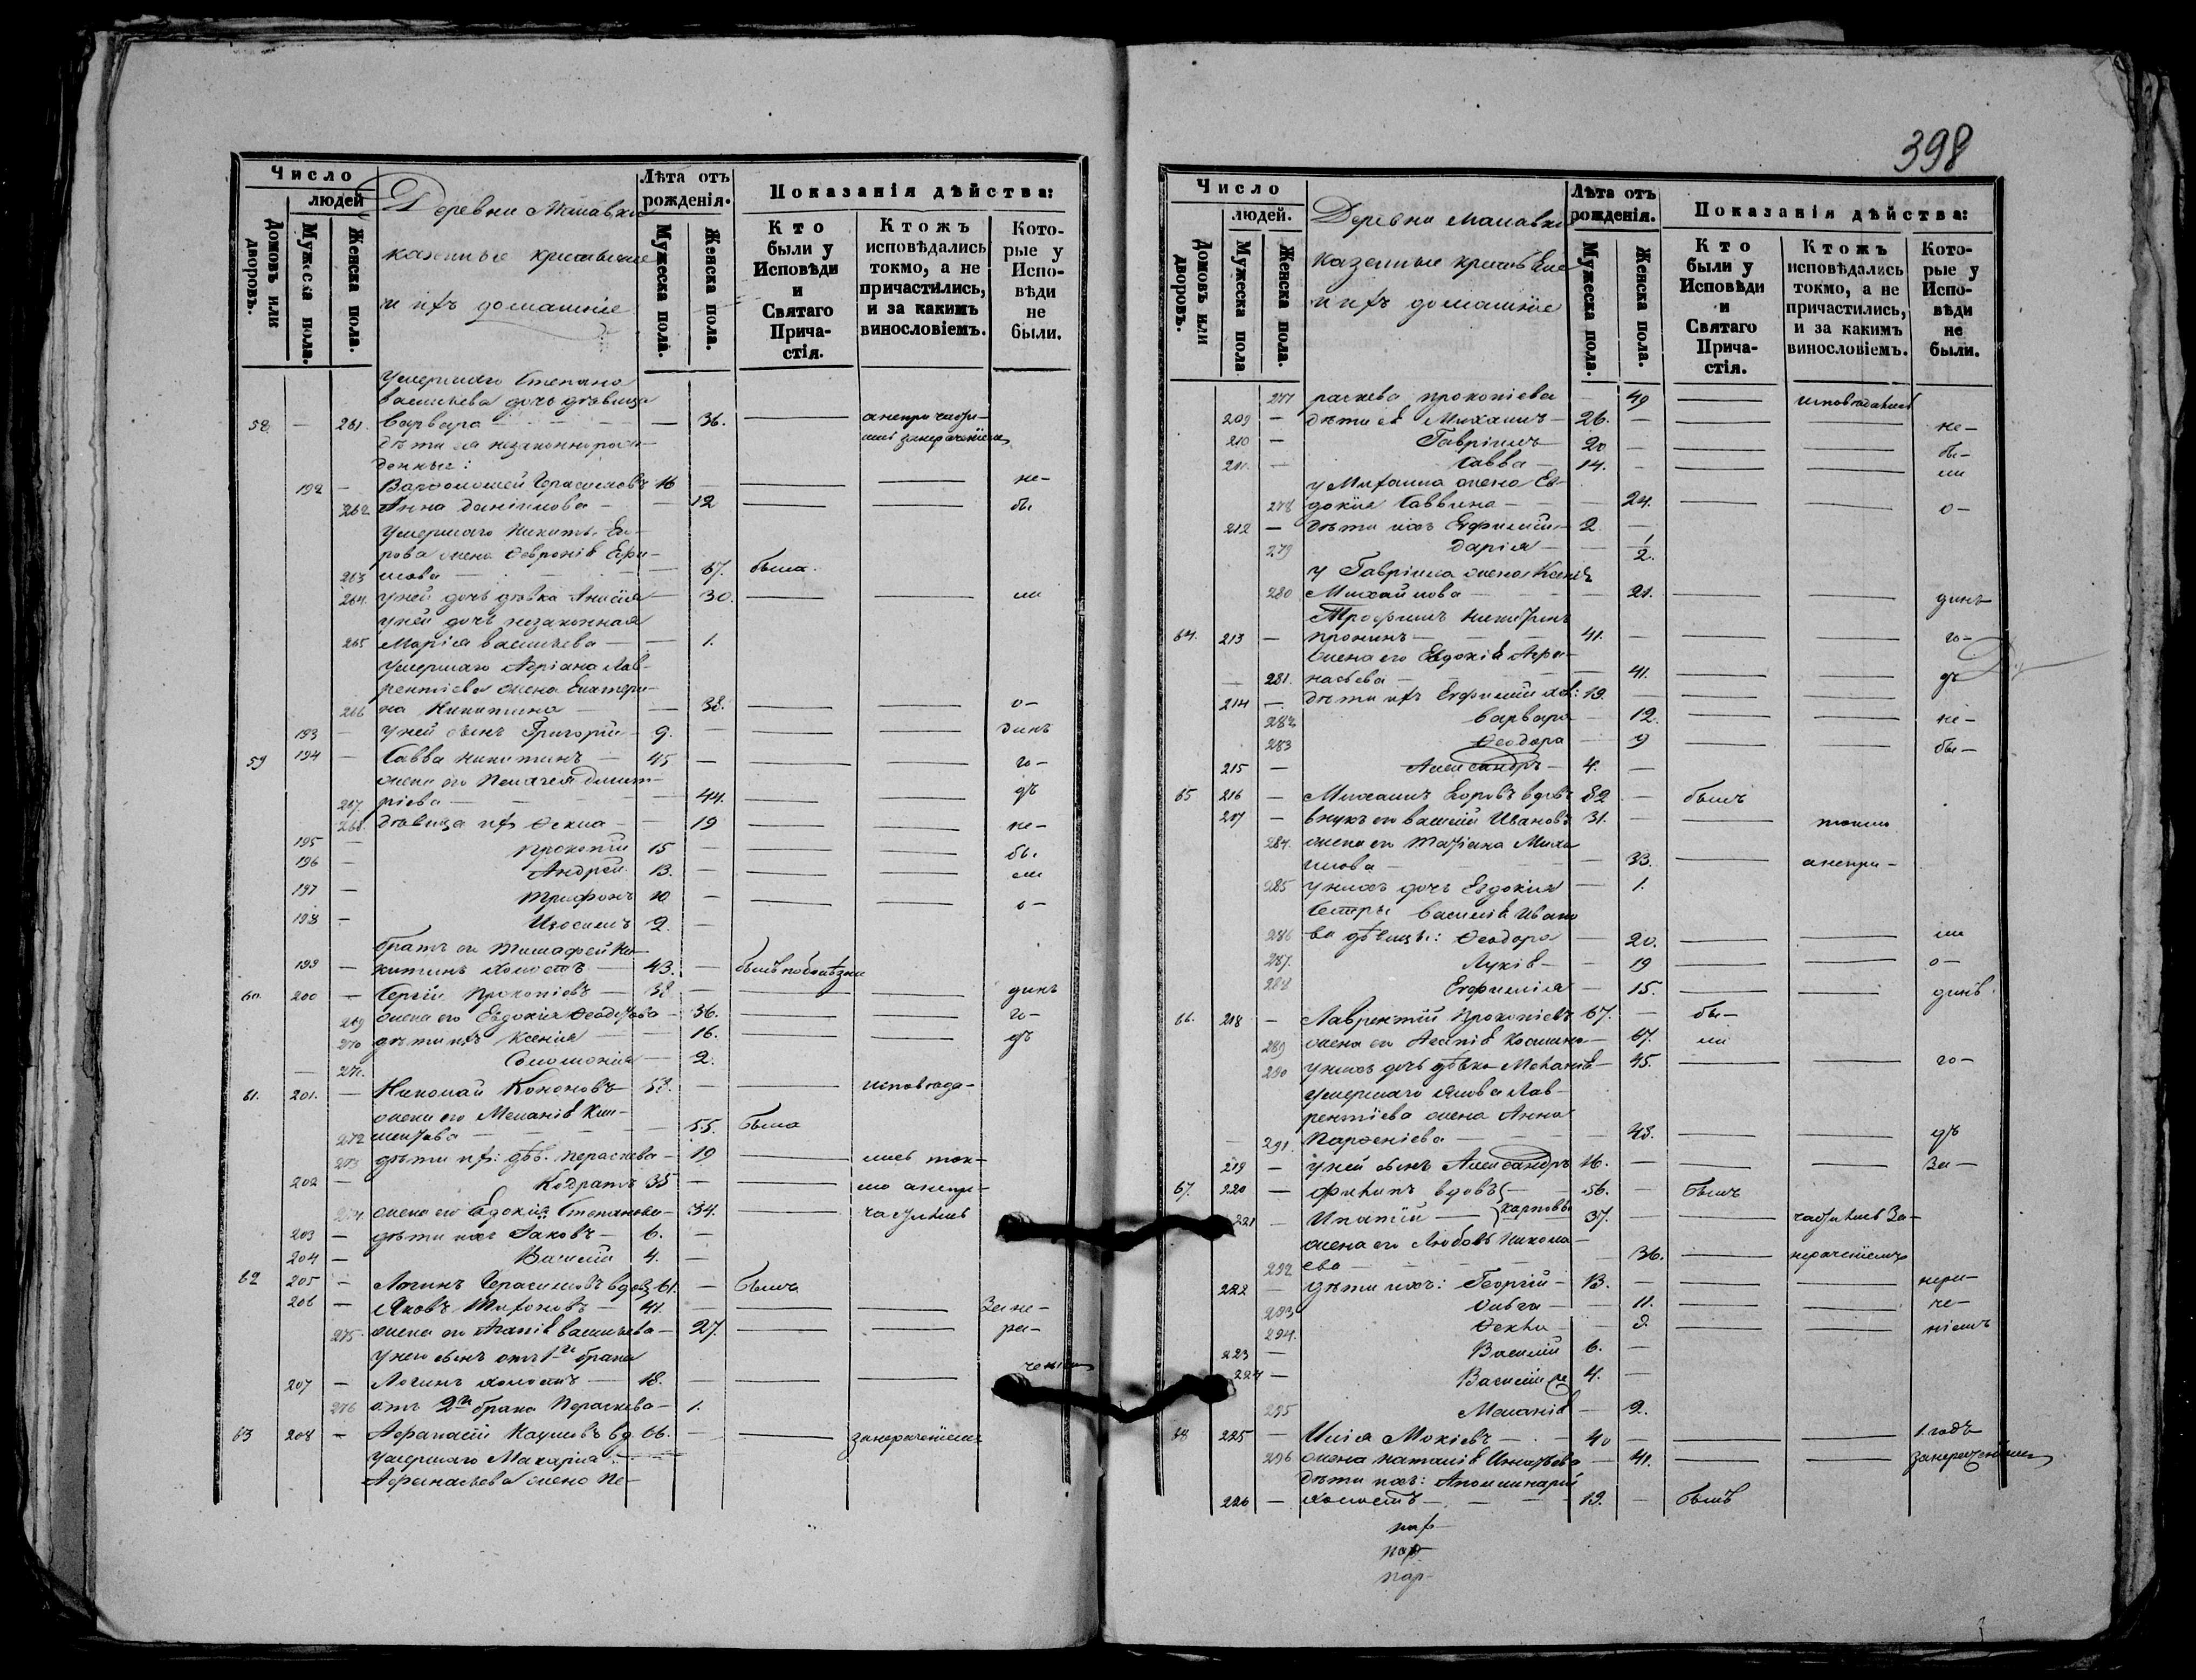 Число
людей
Домовъ или дворовъ.
Мужеска пола.
Женска пола.
Деревни
казенные крестьяне
и ихъ домашніе
Лѣта отъ рожденія.
Мужеска пола.
Женска пола.
Показанія дѣйства:
Кто были у Исповѣди и Святаго Причастія.
Ктожъ исповѣдались токмо, а не причастились, и за какимъ винословіемъ.
Которые у Исповѣди не были.
умершаго Степана
Васильева дочь дѣвица
58 — 261. Варвара — 36. — а непричасти-
дѣти ея незаконнорож- лись занераченіемъ
денные:
192 — Варфоломей Герасимовъ 16 — — — не-
262 Анна Даніилова — 12 — — бы
умершаго Никиты Его-
рова жена Февронія Ефи-
263 мова — 67. была
264. у ней дочь дѣвка Анисія — 30. — — ли
у ней дочь незаконная
265 Марія Васильева — 1.
умершаго Адріана Лав-
рентіева жена Екатери-
266 на Никитина — 38. — — о-
193 — у ней сынъ Григорій — 9. — — — динъ
59 194 — Савва Никитинъ — 45 — — — го-
жена его Пелагея Дмит-
267 ріева — 44. — — дъ
268. дѣвица ихъ Фекла — 19 — — не-
195 — Прокопій 15 — — — бы
196 — Андрей 13. — — — ли
197 — Трифонъ 10 — — — о-
198 — Изосимъ 2. —
братъ его Тимофей Ни-
199 — китинъ холостъ — 43. — былъ по болѣзни
60. 200 — Сергій Прокопіевъ — 38 — — — динъ
269 жена его Евдокія — 36. — — го-
270 дѣти ихъ Ксенія — 16. — — дъ
271. Соломонія — 2.
61. 201. — Николай Кононовъ — 58. — — исповѣда-
жена его Меланія Кли-
272 ментова — 55. была
273 дѣти ихъ: дѣв. Параскева — 19 — лись ток-
202 — Кодратъ 35 — — мо а непри-
274. жена его Евдокія Степанова — 34. — частились
203 — дѣти ихъ Іаковъ — 6. —
204 — Василій 4. —
62 205 — Логинъ Герасимовъ вдовъ 61. — былъ
206 — Яковъ — 41. — — — за не-
275. жена его Агапія Васильева — 27. — — ра-
у него сынъ отъ 1го брака
ченіемъ
207 — Логинъ холостъ — 18. — — —
276 отъ 2го брака Параскева — 1.
63 208 — Афанасій Наумовъ вд. 66. — — занераченіемъ
умершаго Макарія
Афанасьева жена Па-
398
Число
людей.
Домовъ или дворовъ.
Мужеска пола
Женска пола.
Деревни
казенные крестьяне
и ихъ домашніе
Лѣта отъ рожденія.
Мужеска пола.
Женска пола.
Показанія дѣйства:
Кто были у Исповѣди и Святаго Причастія.
Ктожъ исповѣдались токмо, а не причастились, и за какимъ винословіемъ.
Которые у Исповѣди не были.
277 раскева Прокопіева — 49 — исповѣдались
209 — дѣти ея Михаилъ — 26. — — — не-
210 — Гавріилъ — 20 — — — бы-
211. — Савва — 14. — — — ли
у Михаила жена Ев-
278 докія Саввина — 24. — — о-
212 — дѣти ихъ Евфимій — 2. —
279 Дарія — 1/2.
у Гавріила жена Ксенія
280 Михайлова — 21. — — динъ
Трофимъ Никитинъ
64. 213 — Пронинъ — 41. — — — го-
жена его Евдокія Афа-
281. насьева — 41. — — дъ
214 — дѣти ихъ Евфимій хол: 19. — — —
282 Варвара — 12. — — не-
283 Феодора — 9 — — бы-
215 — Александръ — 4. —
65 216 — Михаилъ Егоровъ вдовъ 82 — былъ
217 — внукъ его Василій Ивановъ 31. — — токмо
284. жена его Татіана Миха
илова — 33. — а непри-
285 у нихъ дочь Евдокія — 1.
Сестры Василія Ивано
286 ва дѣвицы: Феодора — 20. — — ли
287. Лукія — 19 — — о-
288 Евфимія — 15. — — динъ
66. 218 — Лаврентій Прокопіевъ 67. — бы-
289 жена его Агапія Космина — 67. ли
290 у нихъ дочь дѣвка Меланія — 45. — — го-
умершаго Якова Лав-
рентіева жена Анна
291. Парфеніева — 48. — — дъ
219 — у ней сынъ Александръ 16. — — — за-
67. 220 — Филипъ вдовъ — 56. — былъ
221 — Ипатій — Карповы 37. — — частились за-
жена его Любовь Никола-
292 ева — 36. — нераченіемъ
222 — дѣти ихъ: Георгій — 13. — — — нера-
293 Ольга — 11. — — че-
294. Фекла — 8 — — ніемъ
223 — Василій 6. —
224 — Василій 4. —
295 Меланія — 2.
68 225 — Илія Мокіевъ — 40 — — — 1. годъ
296 жена Наталія Игнатьева — 41. — — занераченіемъ
дѣти ихъ: Аполлинарій
226 — холостъ — 19. — былъ